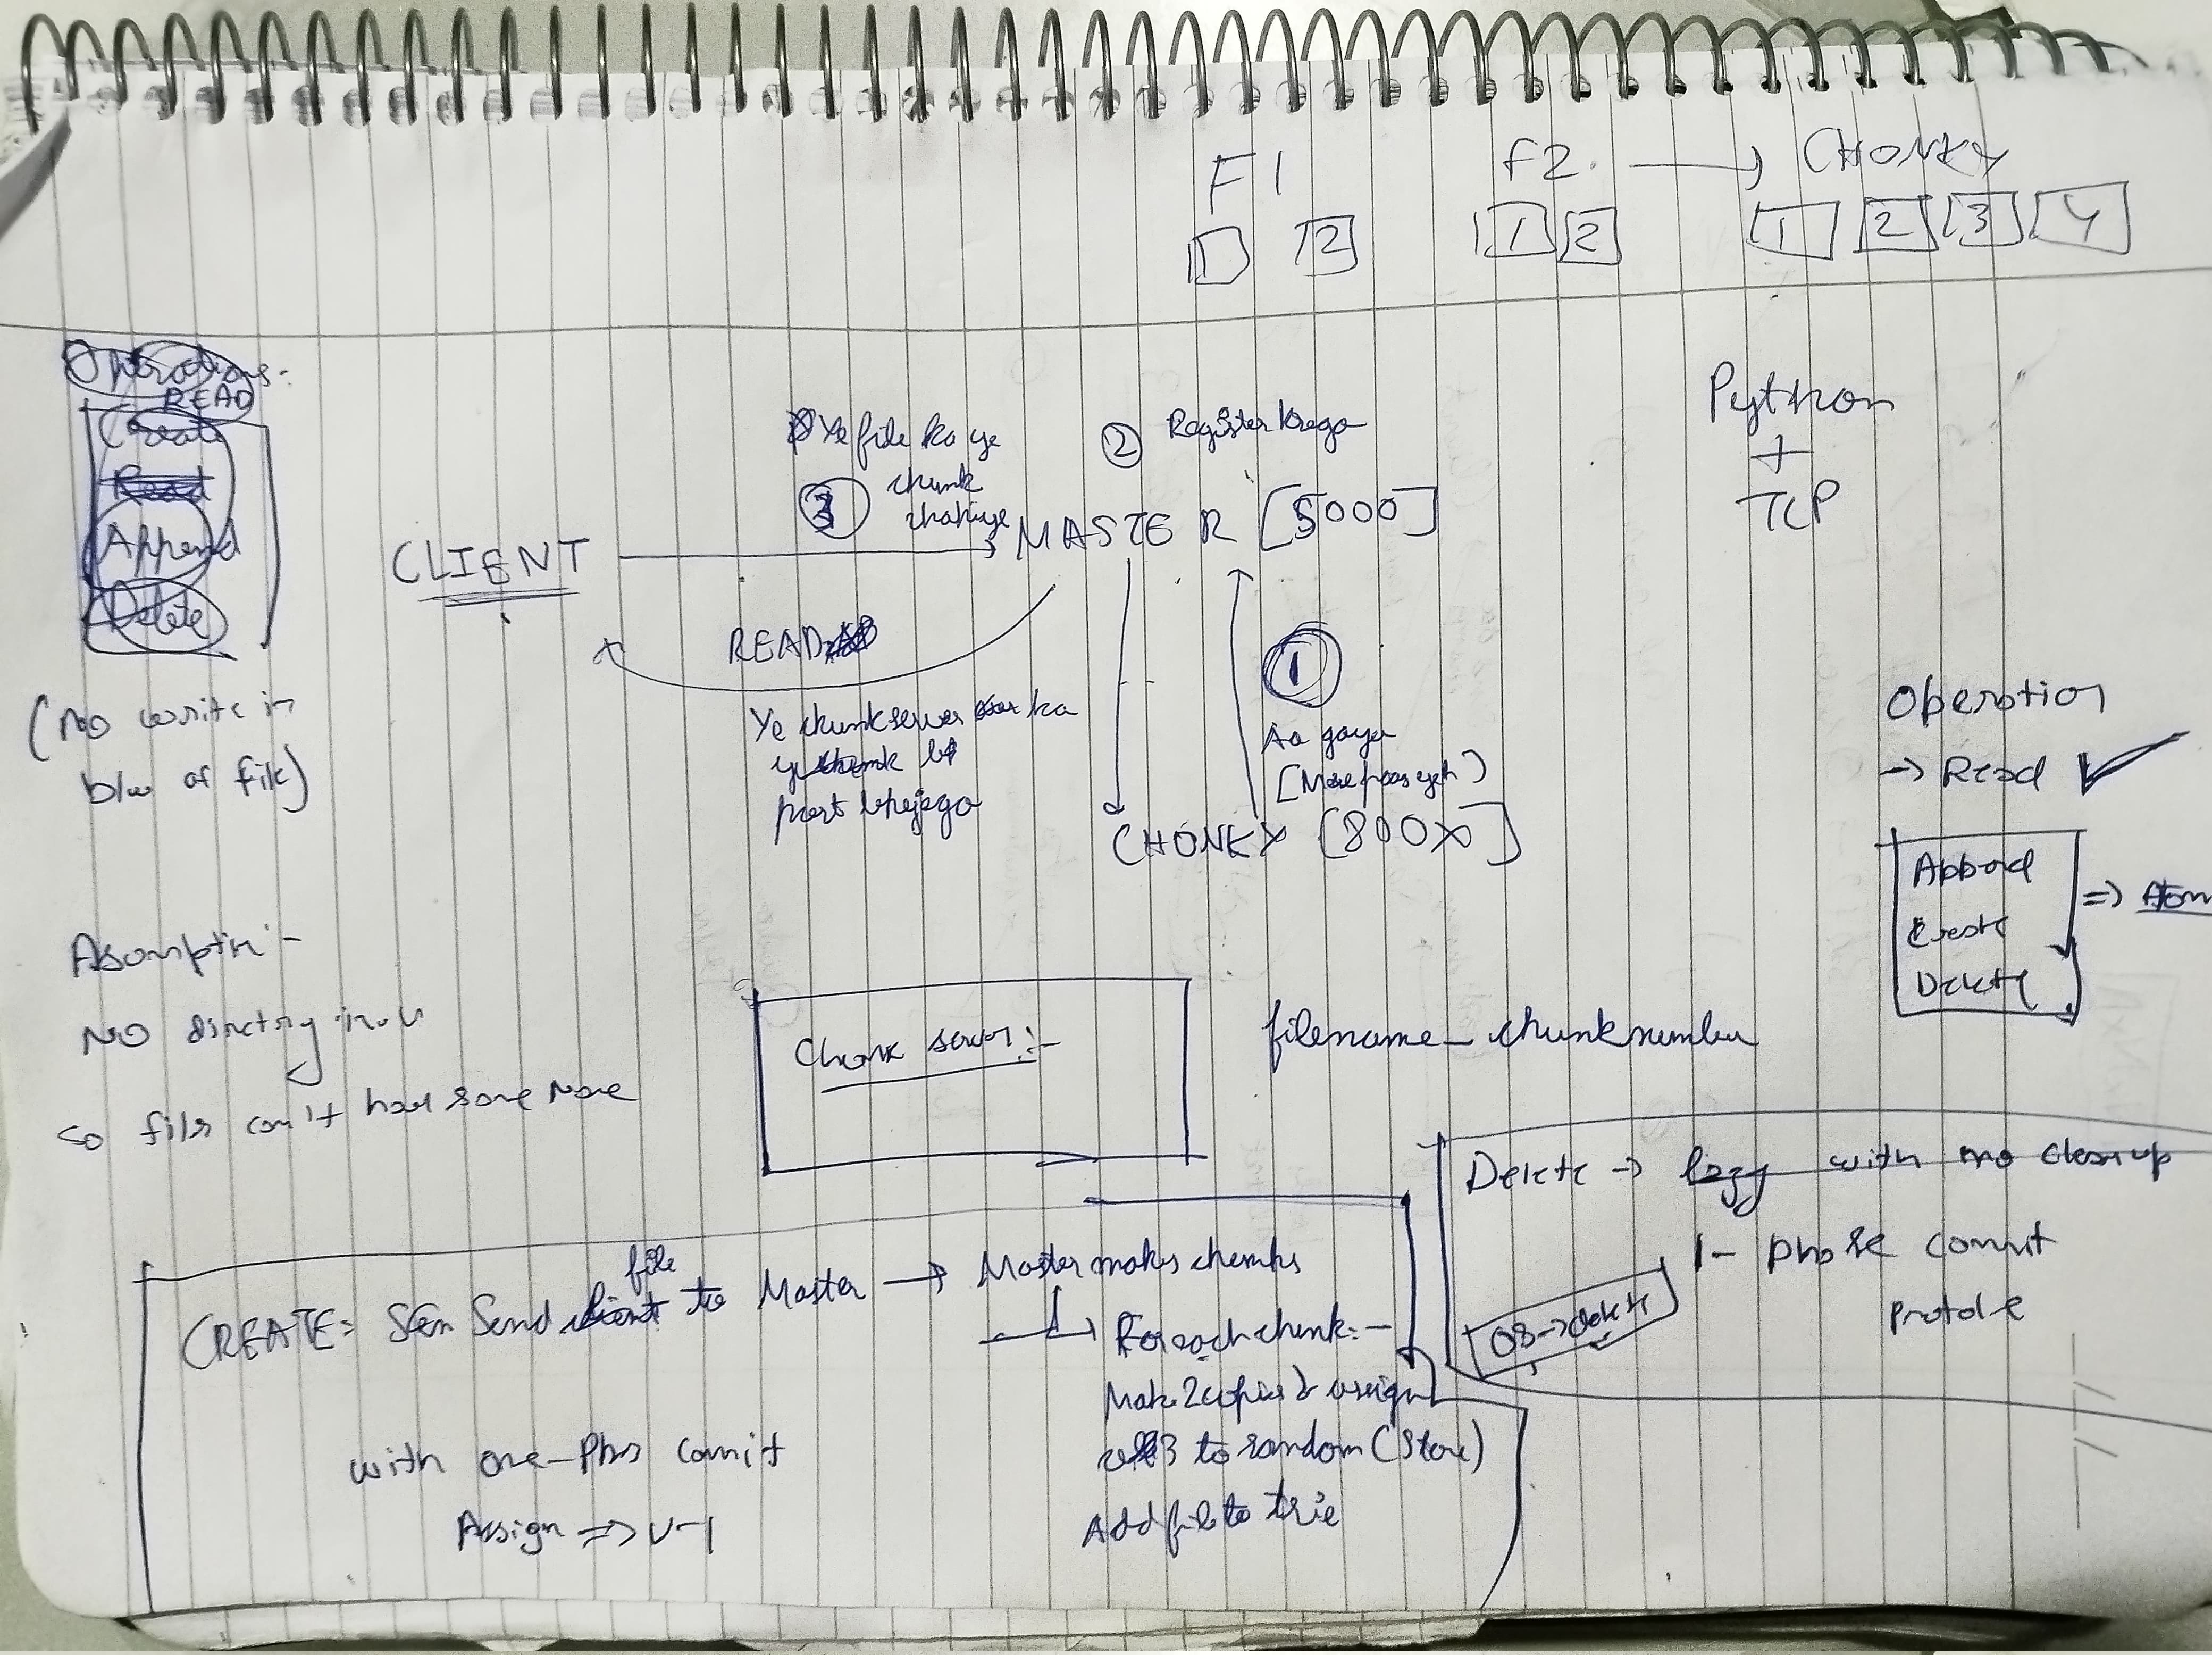 F1 F2. → CHONKY
1 2 1 2 1 2 3 4
Operations:-
READ
Create
Read
Append
Delete
(No write in
b/w of file)
Ye file ka ye
chunk
chahiye
3
2 Register krega
CLIENT
MASTER [5000]
Python
+
TCP
READ
Ye chunkserver ka
ye chunk
port bhejega
1
Aa gaya
[More paas yeh]
CHONKY [800X]
Operation
→ Read ✓
Append
Create
Delete
⇒ Atom
Asumptin:-
NO directory
so files can't have same Name
Chunk server:-
filename_chunknumber
Delete → lazy with no cleanup
1- phase commit
OS→delete
CREATE= Send file to Master → Master makes chunks
→ For each chunk:-
Make 2 copies & assign
3 to random (Store)
Add file to trie
with one-Phs comit
Assign => v-1